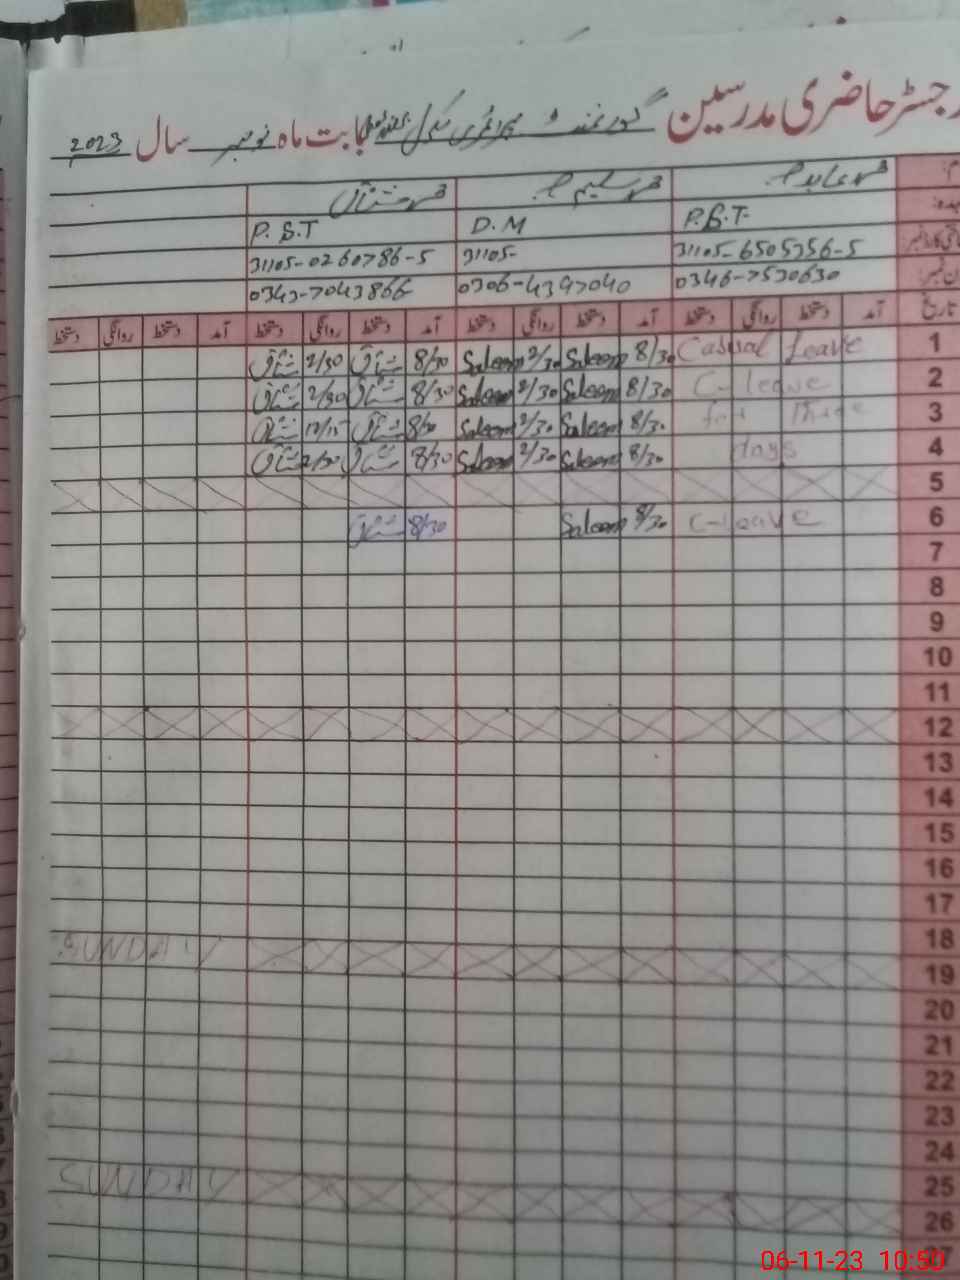 رجسٹر حاضری مدرسین گورنمنٹ پرائمری سکول بابت ماہ نومبر سال 2023
محمد عابد محمد سلیم محمد مشتاق
P.S.T. D.M P.S.T
31105-6505356-5 31105- 31105-0260786-5
0346-7530630 0306-4397040 0343-7043866
تاریخ آمد دستخط روانگی دستخط آمد دستخط روانگی دستخط آمد دستخط روانگی دستخط آمد دستخط روانگی دستخط
1 Casual Leave 8/30 Saleem 2/30 Saleem 8/30 مشتاق 2/30 مشتاق
2 C-leave 8/30 Saleem 2/30 Saleem 8/30 مشتاق 2/30 مشتاق
3 for three 8/30 Saleem 2/30 Saleem 8/30 مشتاق 12/15 مشتاق
4 days 8/30 Saleem 2/30 Saleem 8/30 مشتاق 2/30 مشتاق
5
6 C-leave 8/30 Saleem 8/30 مشتاق
7
8
9
10
11
12
13
14
15
16
17
18
SUNDAY
19
20
21
22
23
24
25
SUNDAY
26
27
06-11-23 10:50